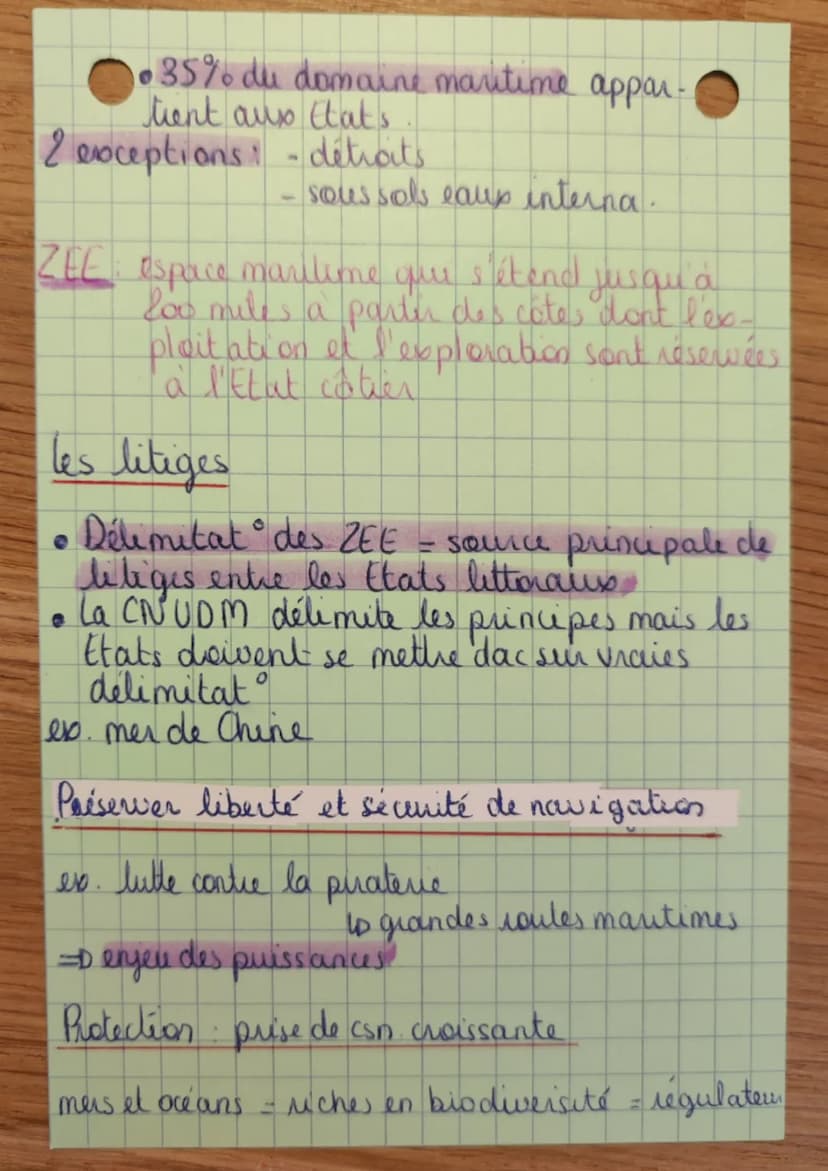 • 35% du domaine maritime appar-
tient aux Etats.
2 exceptions : - détroits
- sous sols eaux interna.
ZEE : espace maritime qui s'étend jusqu'à
200 miles à partir des côtes dont l'ex-
ploitation et l'exploration sont réservées
à l'Etat côtier
Les litiges
• Délimitat° des ZEE = source principale de
litiges entre les Etats littoraux
• La CNUDM délimite les principes mais les
Etats doivent se mettre dac sur vraies
délimitat°
ex. mer de Chine
Préserver liberté et sécurité de navigation
ex. lutte contre la piraterie
↳ grandes routes maritimes
=> enjeu des puissances
Protection : prise de csn croissante
mers et océans = riches en biodiversité = régulateur